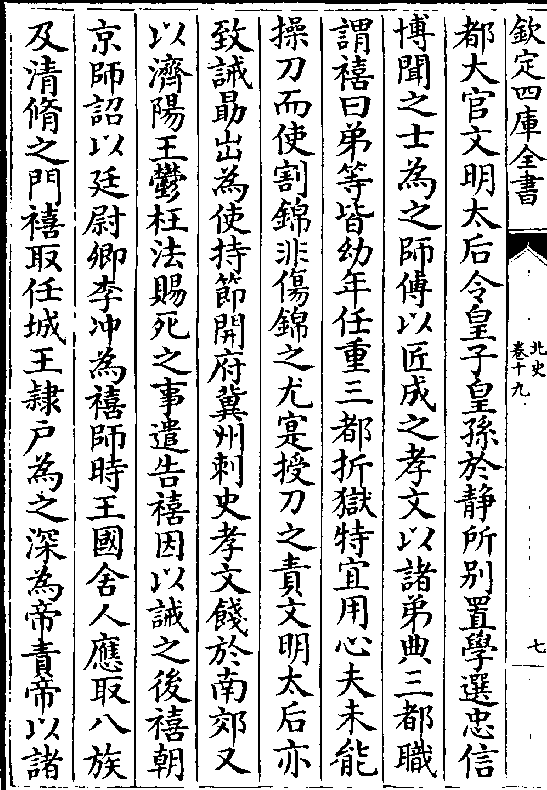 欽定四庫全書
北史
卷十九
七
都大官文明太后令皇子皇孫於静所别置學選忠信
博聞之士為之師傅以匠成之孝文以諸弟典三都職
謂禧曰弟等皆幼年任重三都折獄特宜用心夫未能
操刀而使割錦非傷錦之尤寔授刀之責文明太后亦
致誡勗出為使持節開府冀州刺史孝文餞於南郊又
以濟陽王鬱枉法賜死之事遣告禧因以誡之後禧朝
京師詔以廷尉卿李冲為禧師時王國舍人應取八族
及清脩之門禧取任城王隸户為之深為帝責帝以諸